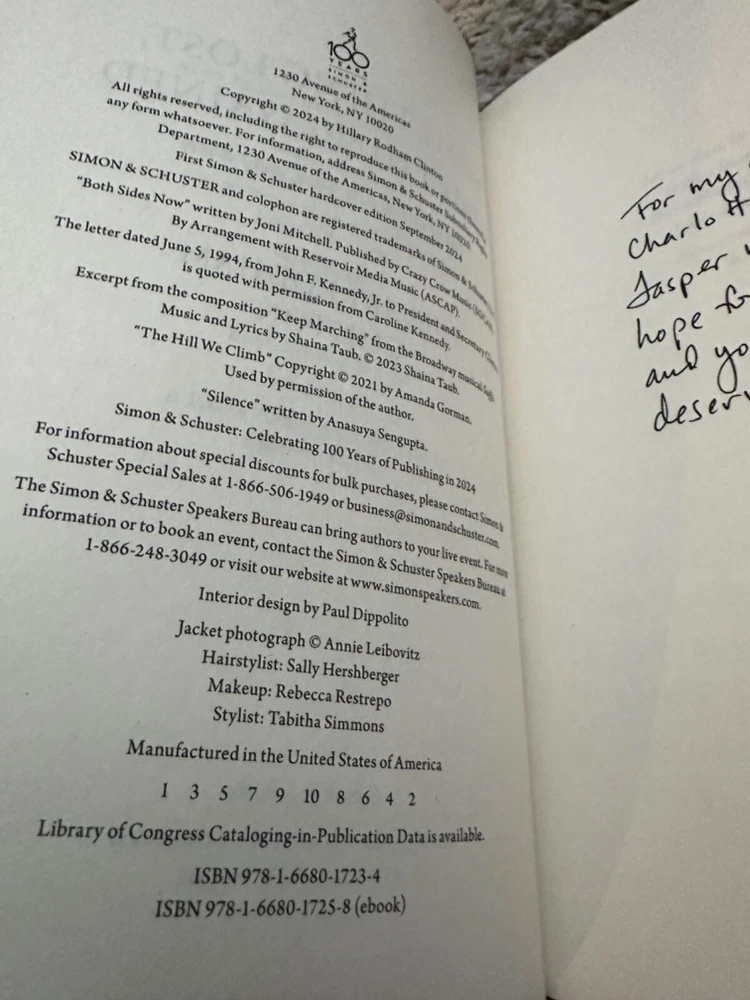 100
YEARS
SIMON &
SCHUSTER
1230 Avenue of the Americas
New York, NY 10020
Copyright © 2024 by Hillary Rodham Clinton
All rights reserved, including the right to reproduce this book or portions thereof
any form whatsoever. For information, address Simon & Schuster Subsidiary Rights
Department, 1230 Avenue of the Americas, New York, NY 10020
First Simon & Schuster hardcover edition September 2024
SIMON & SCHUSTER and colophon are registered trademarks of Simon & Schuster
"Both Sides Now" written by Joni Mitchell. Published by Crazy Crow Music
By Arrangement with Reservoir Media Music (ASCAP).
The letter dated June 5, 1994, from John F. Kennedy, Jr. to President and Secretary Clinton
is quoted with permission from Caroline Kennedy.
Excerpt from the composition "Keep Marching" from the Broadway musical Suffs
Music and Lyrics by Shaina Taub. © 2023 Shaina Taub.
"The Hill We Climb" Copyright © 2021 by Amanda Gorman.
Used by permission of the author.
"Silence" written by Anasuya Sengupta.
Simon & Schuster: Celebrating 100 Years of Publishing in 2024
For information about special discounts for bulk purchases, please contact Simon &
Schuster Special Sales at 1-866-506-1949 or business@simonandschuster.com.
The Simon & Schuster Speakers Bureau can bring authors to your live event. For more
information or to book an event, contact the Simon & Schuster Speakers Bureau at
1-866-248-3049 or visit our website at www.simonspeakers.com.
Interior design by Paul Dippolito
Jacket photograph © Annie Leibovitz
Hairstylist: Sally Hershberger
Makeup: Rebecca Restrepo
Stylist: Tabitha Simmons
Manufactured in the United States of America
1 3 5 7 9 10 8 6 4 2
Library of Congress Cataloging-in-Publication Data is available.
ISBN 978-1-6680-1723-4
ISBN 978-1-6680-1725-8 (ebook)
For my
Charlott
Jasper
hope fo
and yo
deserv